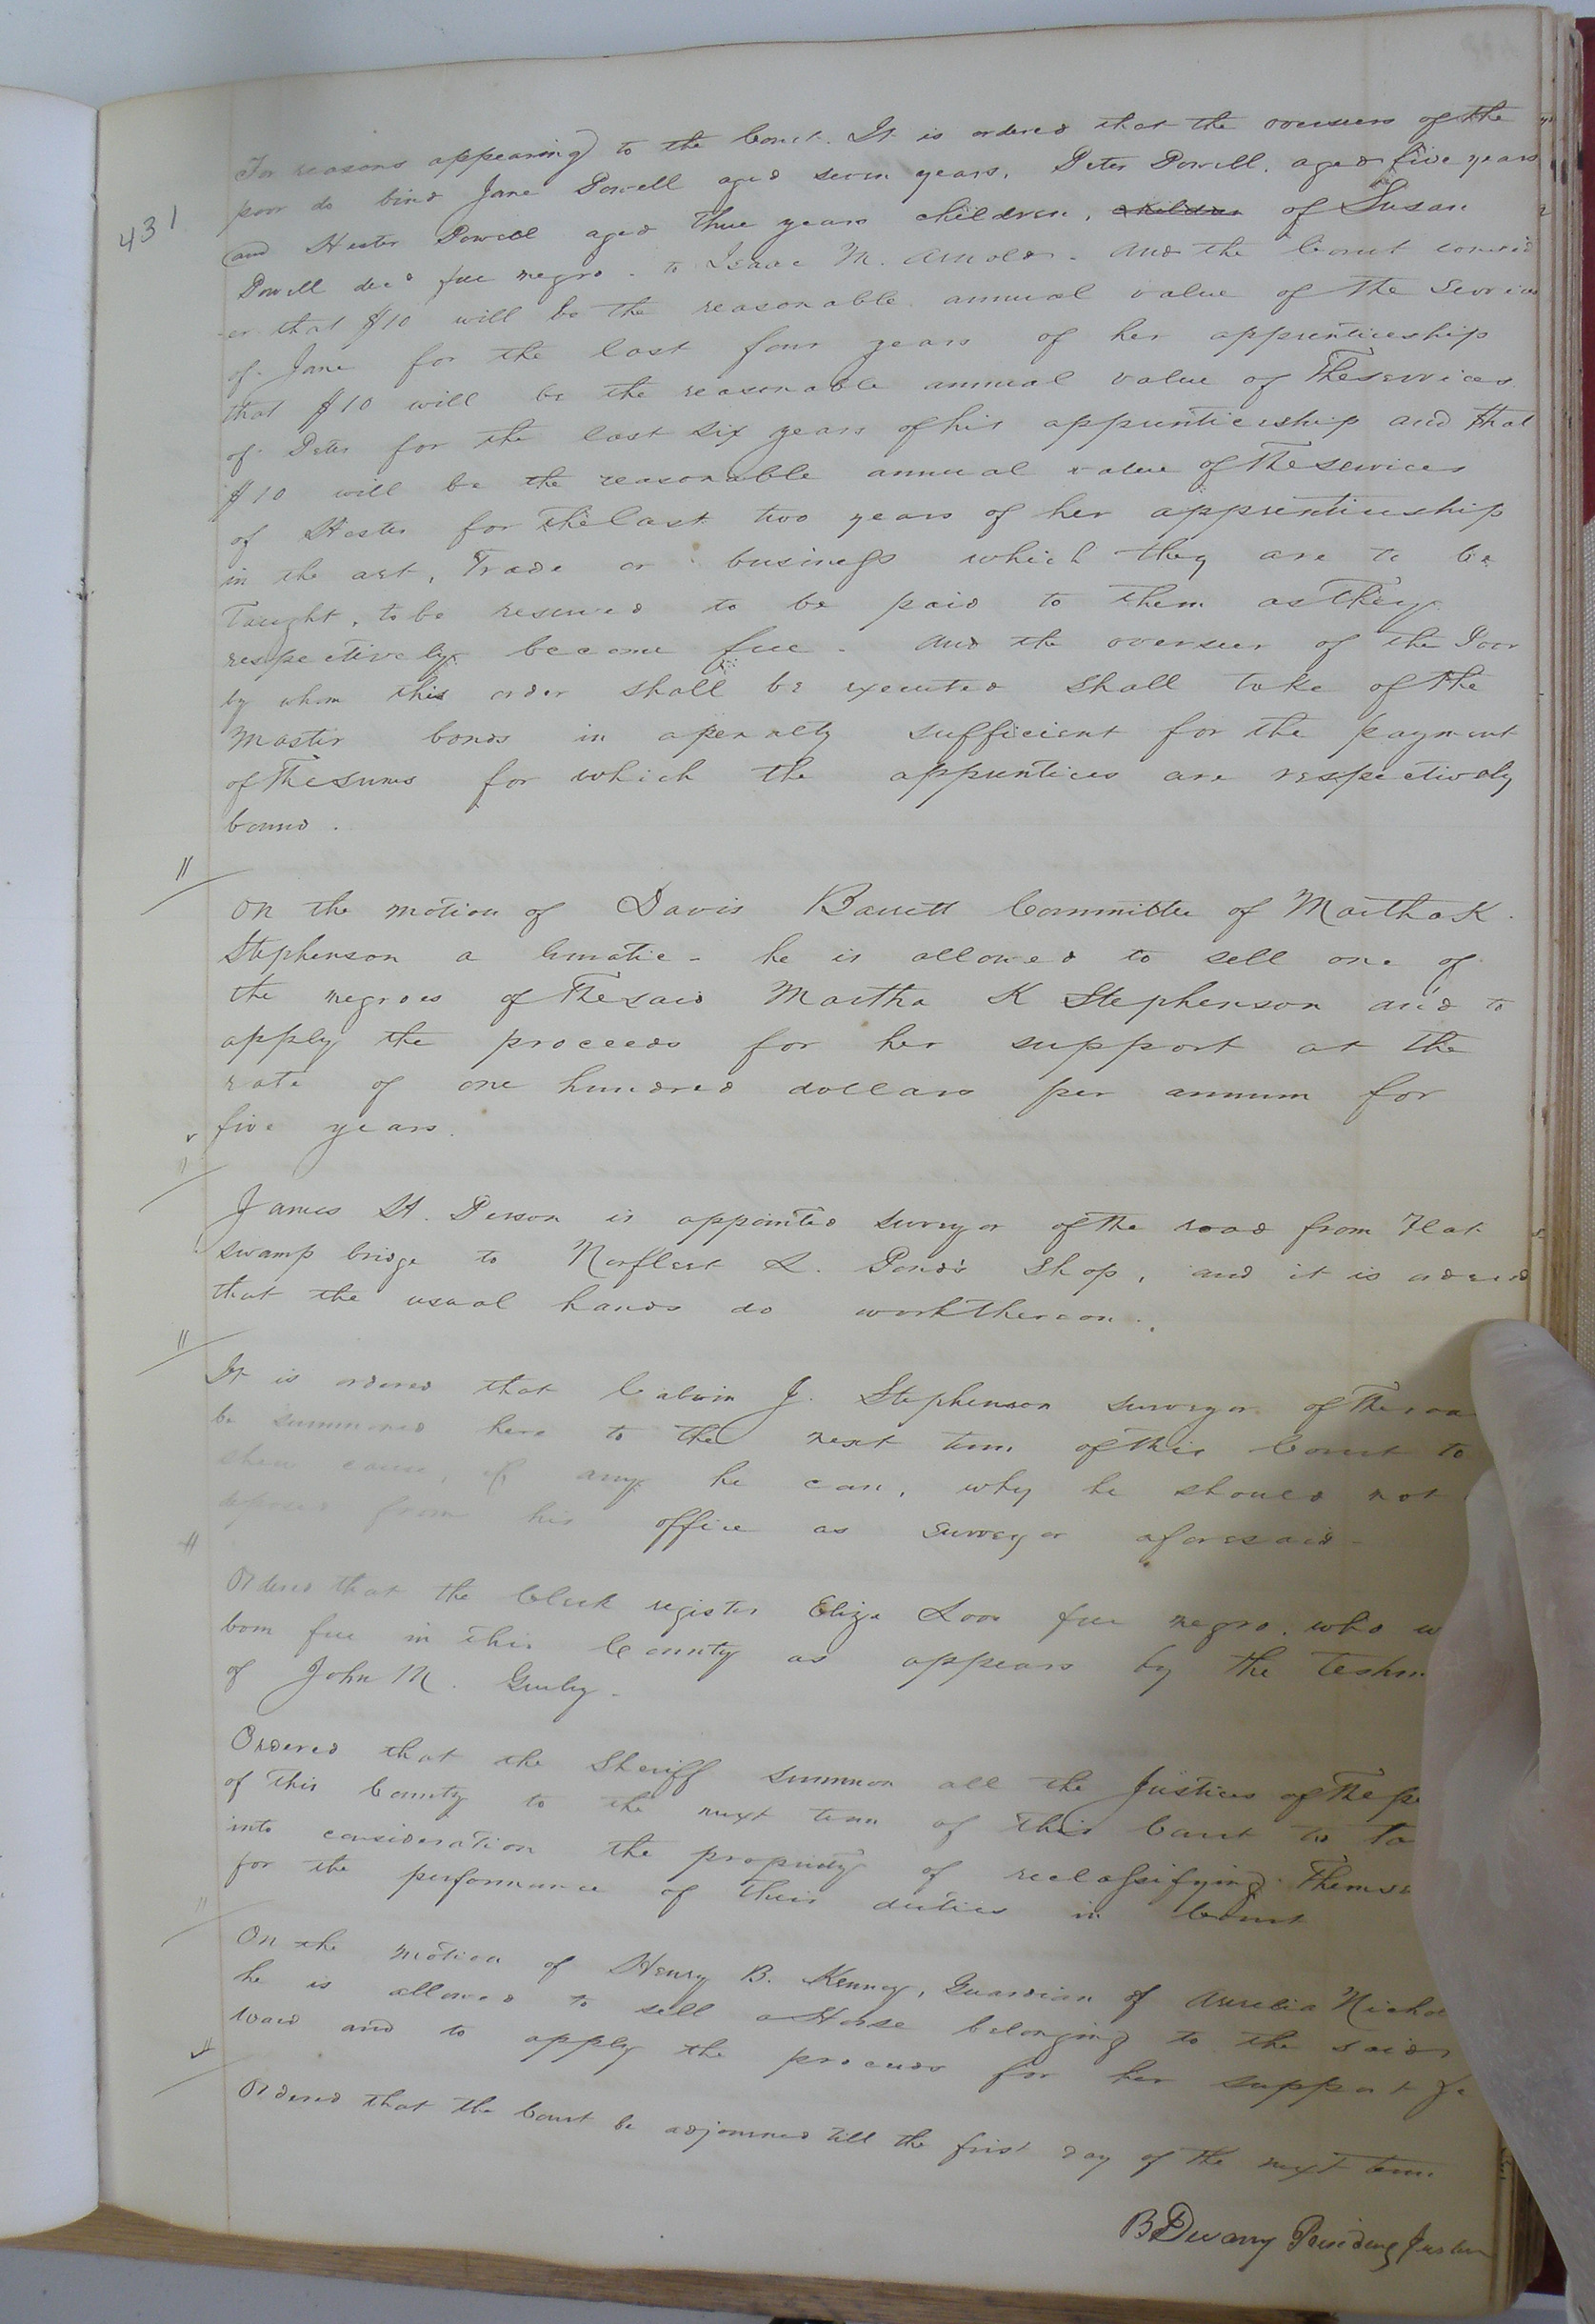 431
For reasons appearing to the Court. It is ordered that the overseers of the
poor do bind Jane Powell aged seven years, Peter Powell, aged five years
and Hester Powell aged three years children, children of Susan
Powell dec'd free negro - to Isaac M. Arnold - and the Court consid
-er that $10 will be the reasonable annual value of the services
of Jane for the last four years of her apprenticeship
that $10 will be the reasonable annual value of the services
of Peter for the last six years of his apprenticeship and that
$10 will be the reasonable annual value of the services
of Hester for the last two years of her apprenticeship
in the art, Trade or business which they are to be
Taught, to be reserved to be paid to them as they
respectively become free - and the overseer of the Poor
by whom this order shall be executed shall take of the
Master bonds in a penalty sufficient for the payment
of the sums for which the apprentices are respectively
bound.
On the motion of Davis Barrett Committee of Martha K.
Stephenson a lunatic - he is allowed to sell one of
the negroes of the said Martha K Stephenson and to
apply the proceeds for her support at the
rate of one hundred dollars per annum for
five years.
James H. Person is appointed surveyor of the road from Flat
swamp bridge to Norfleet L. Pond's Shop, and it is ordered
that the usual hands do work thereon.
It is ordered that Calvin J. Stephenson surveyor of the roa
be summoned here to the next term of this Court to
shew cause, if any he can, why he should not
deposed from his office as surveyor aforesaid -
Ordered that the Clerk register Eliza free negro, who w
born free in this County as appears by the testim
of John M. Gurley -
Ordered that the Sheriff summon all the Justices of the pe
of this County to the next term of this Court to ta
into consideration the propriety of reclassifying themse
for the performance of their duties in Court
On the motion of Henry B. Kenney, Guardian of Aurelia Nichol
he is allowed to sell a Horse belonging to the said
ward and to apply the proceeds for her support &c
Ordered that the Court be adjourned till the first day of the next term.
B Devany Presiding Justice